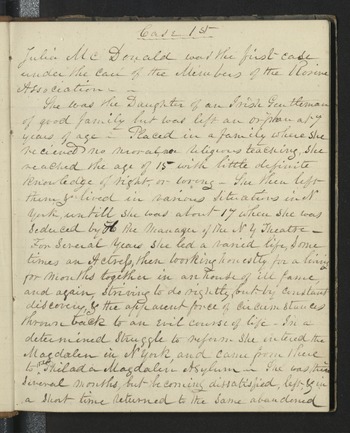 Case 1st
Julia Mc Donald was the first case
under the care of the Members of the Rosine
Association - -
She was the Daughter of an Irish Gentleman
of good family but was left an orphan at 7
years of age - Placed in a family where she
recieved no moral or religious teaching. She
reached the age of 15 with little definite
knowledge of right, or wrong - She then left
them & lived in various situations in N
York untill she was about 17 when she was
seduced by the Manager of the N Y Theatre -
For several years she led a varied life, some
times an Actress, then working honestly for a living
for months together in an house of ill fame
and again striving to do rightly, but by constant
discovery & the apparent force of circumstances
thrown back to an evil course of life - In a
determined struggle to reform she entered the
Magdalen in N York and came from there
to Philada Magdalen Asylum - She was there
several months, but becoming dissatisfied, left & in
a short time returned to the same abandoned